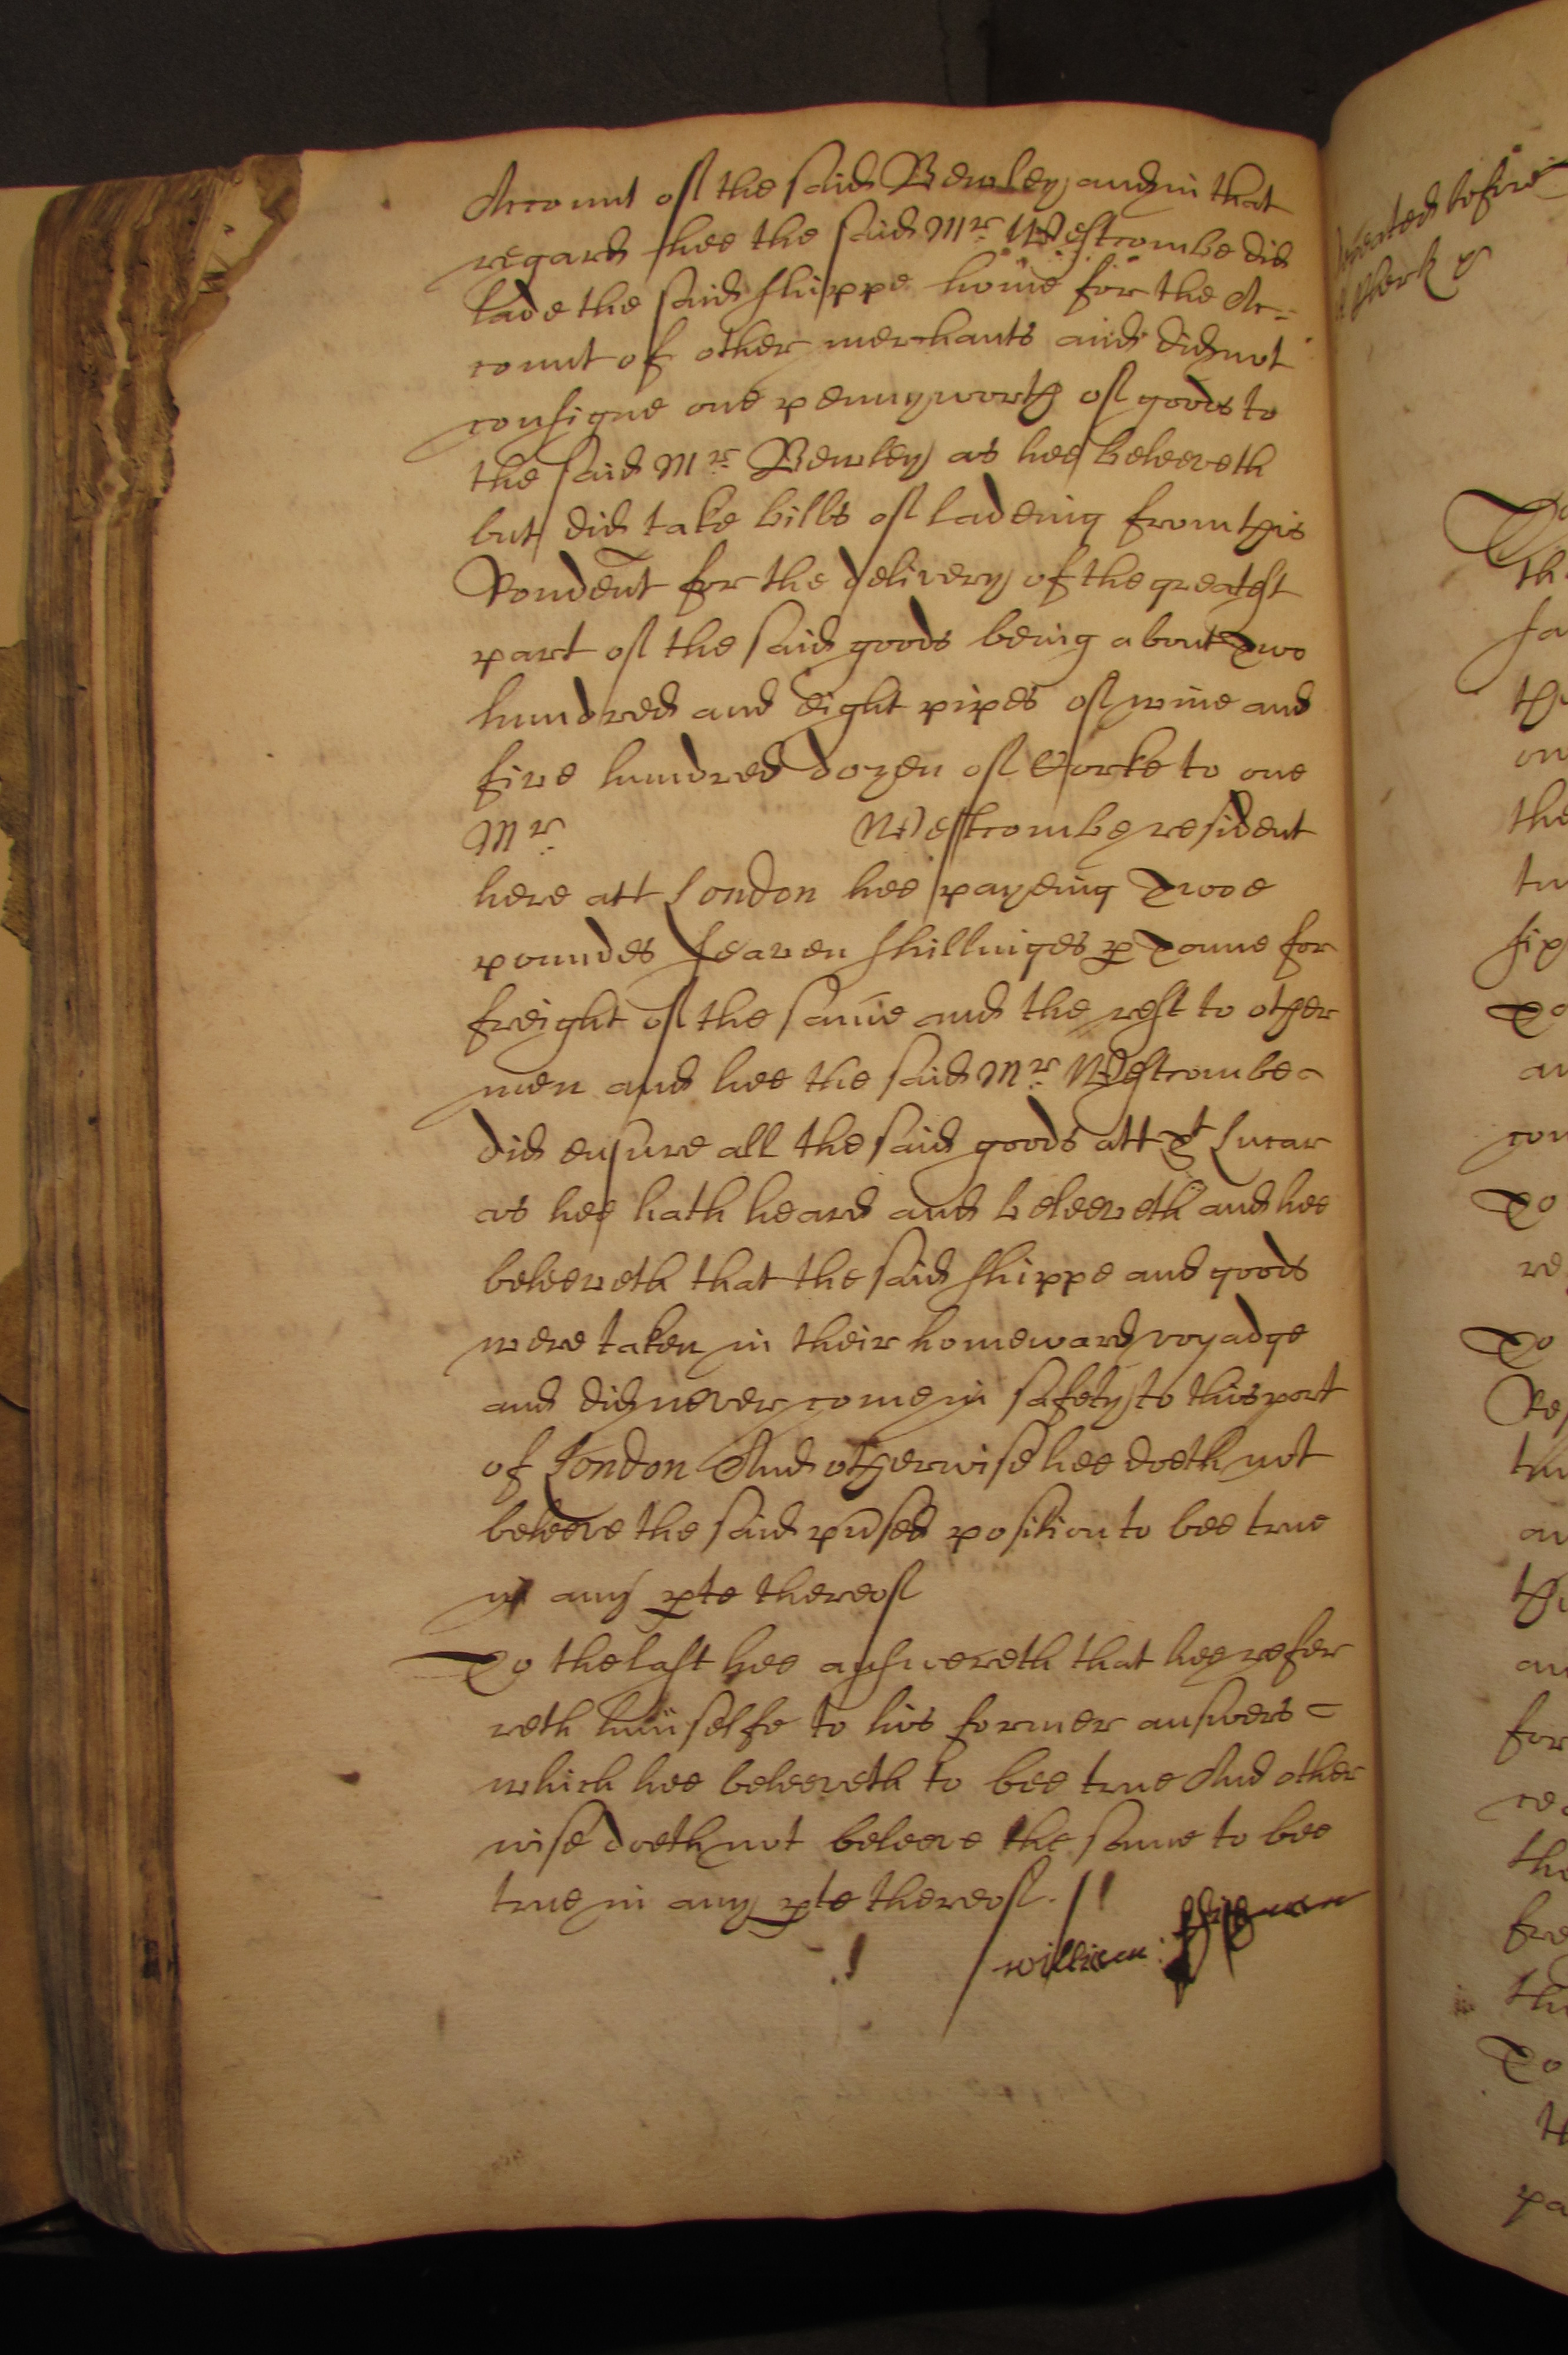 Account of the said Bewley, and in that
regard hee the said Mr. Westcombe did
lade the said shippe home for the Ac=
count of other merchants and did not
consigne one pennyworth of goods to
the said Mr. Bewley as hee beleeveth
but did take bills of ladeing from this
Rondent for the delivery of the greatest
part of the said goods being about Two
hundred and eight pipes of wine and
five hundred dozen of Corke to one
Mr. Westcombe resident
here att London hee payeing Twoe
poundes seaven shillinges p Tonne for
freight of the same and the rest to other
men and hee the said Mr. Westcombe
did ensure all the said goods att St Lucar
as hee hath heard and beleeveth and hee
beleeveth that the said shippe and goods
were taken in their homeward voyadge
and did never come in safety to this port
of London And otherwise hee doeth not
beleeve the said pused position to bee true
in any pte thereof
To the last hee answereth that hee refer
reth himselfe to his former answers =
which hee beleeveth to bee true And other
wise doeth not beleeve the same to bee
true in any pte thereof. //
william:
Repeated before
Th
fa
on
the
tw
To
an
con
To
re
To
Res
an
an
for
the
fre
To
pa